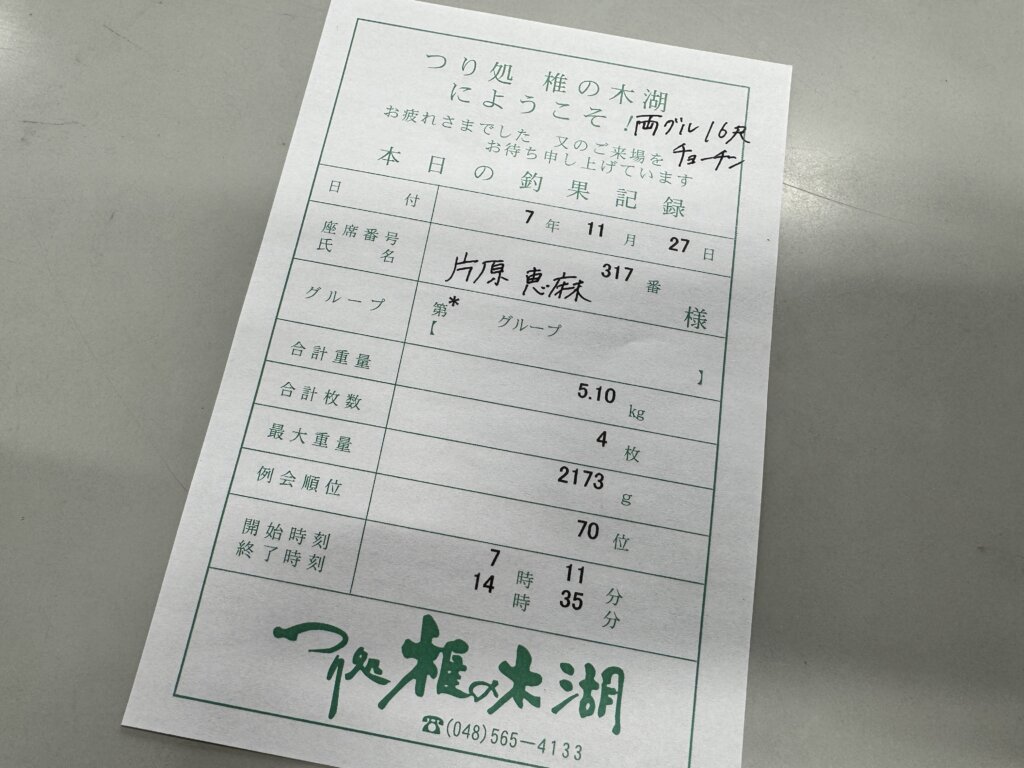 つり処 椎の木湖
にようこそ!
両グル16尺
チョーチン
お疲れさまでした 又のご来場を
お待ち申し上げています
本日の釣果記録
日付 7年 11月 27日
座席番号 317番
氏名 片原 恵麻 様
グループ 第*グループ
【 】
合計重量 5.10 kg
合計枚数 4 枚
最大重量 2173 g
例会順位 70 位
開始時刻 7時 11分
終了時刻 14時 35分
つり処 椎の木湖
☎(048)565-4133